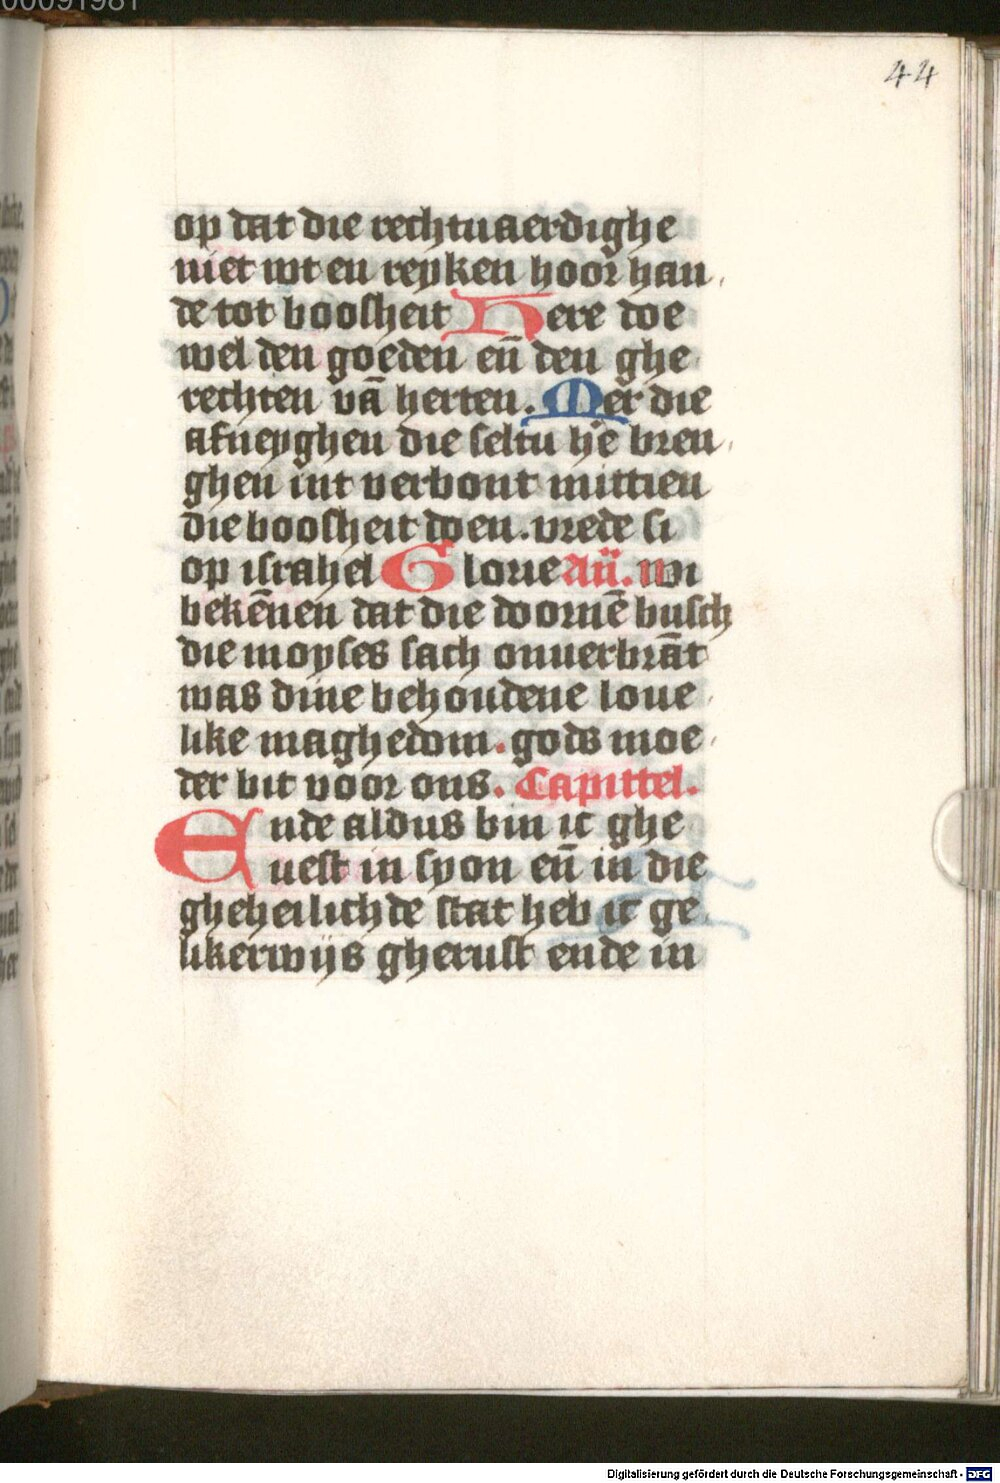 00091981
44
op dat die rechtuaerdighe
niet wt en reyken hoor han
de tot boosheit Here doe
wel den goeden en̄ den ghe
rechten vā herten. Mer die
afneyghen die seltu hē bren
ghen int verbont mittien
die boosheit doen. vrede si
op israhel Glorie Añ. wi
bekēnen dat die doornē busch
die moyses sach onuerbrāt
was dine behoudene loue
like maghedom. gods moe
der bit voor ons. Capittel.
Ende aldus bin ic ghe
uest in syon en̄ in die
gheheilichde stat heb ic ge
likerwijs gherust ende in
Digitalisierung gefördert durch die Deutsche Forschungsgemeinschaft - DFG